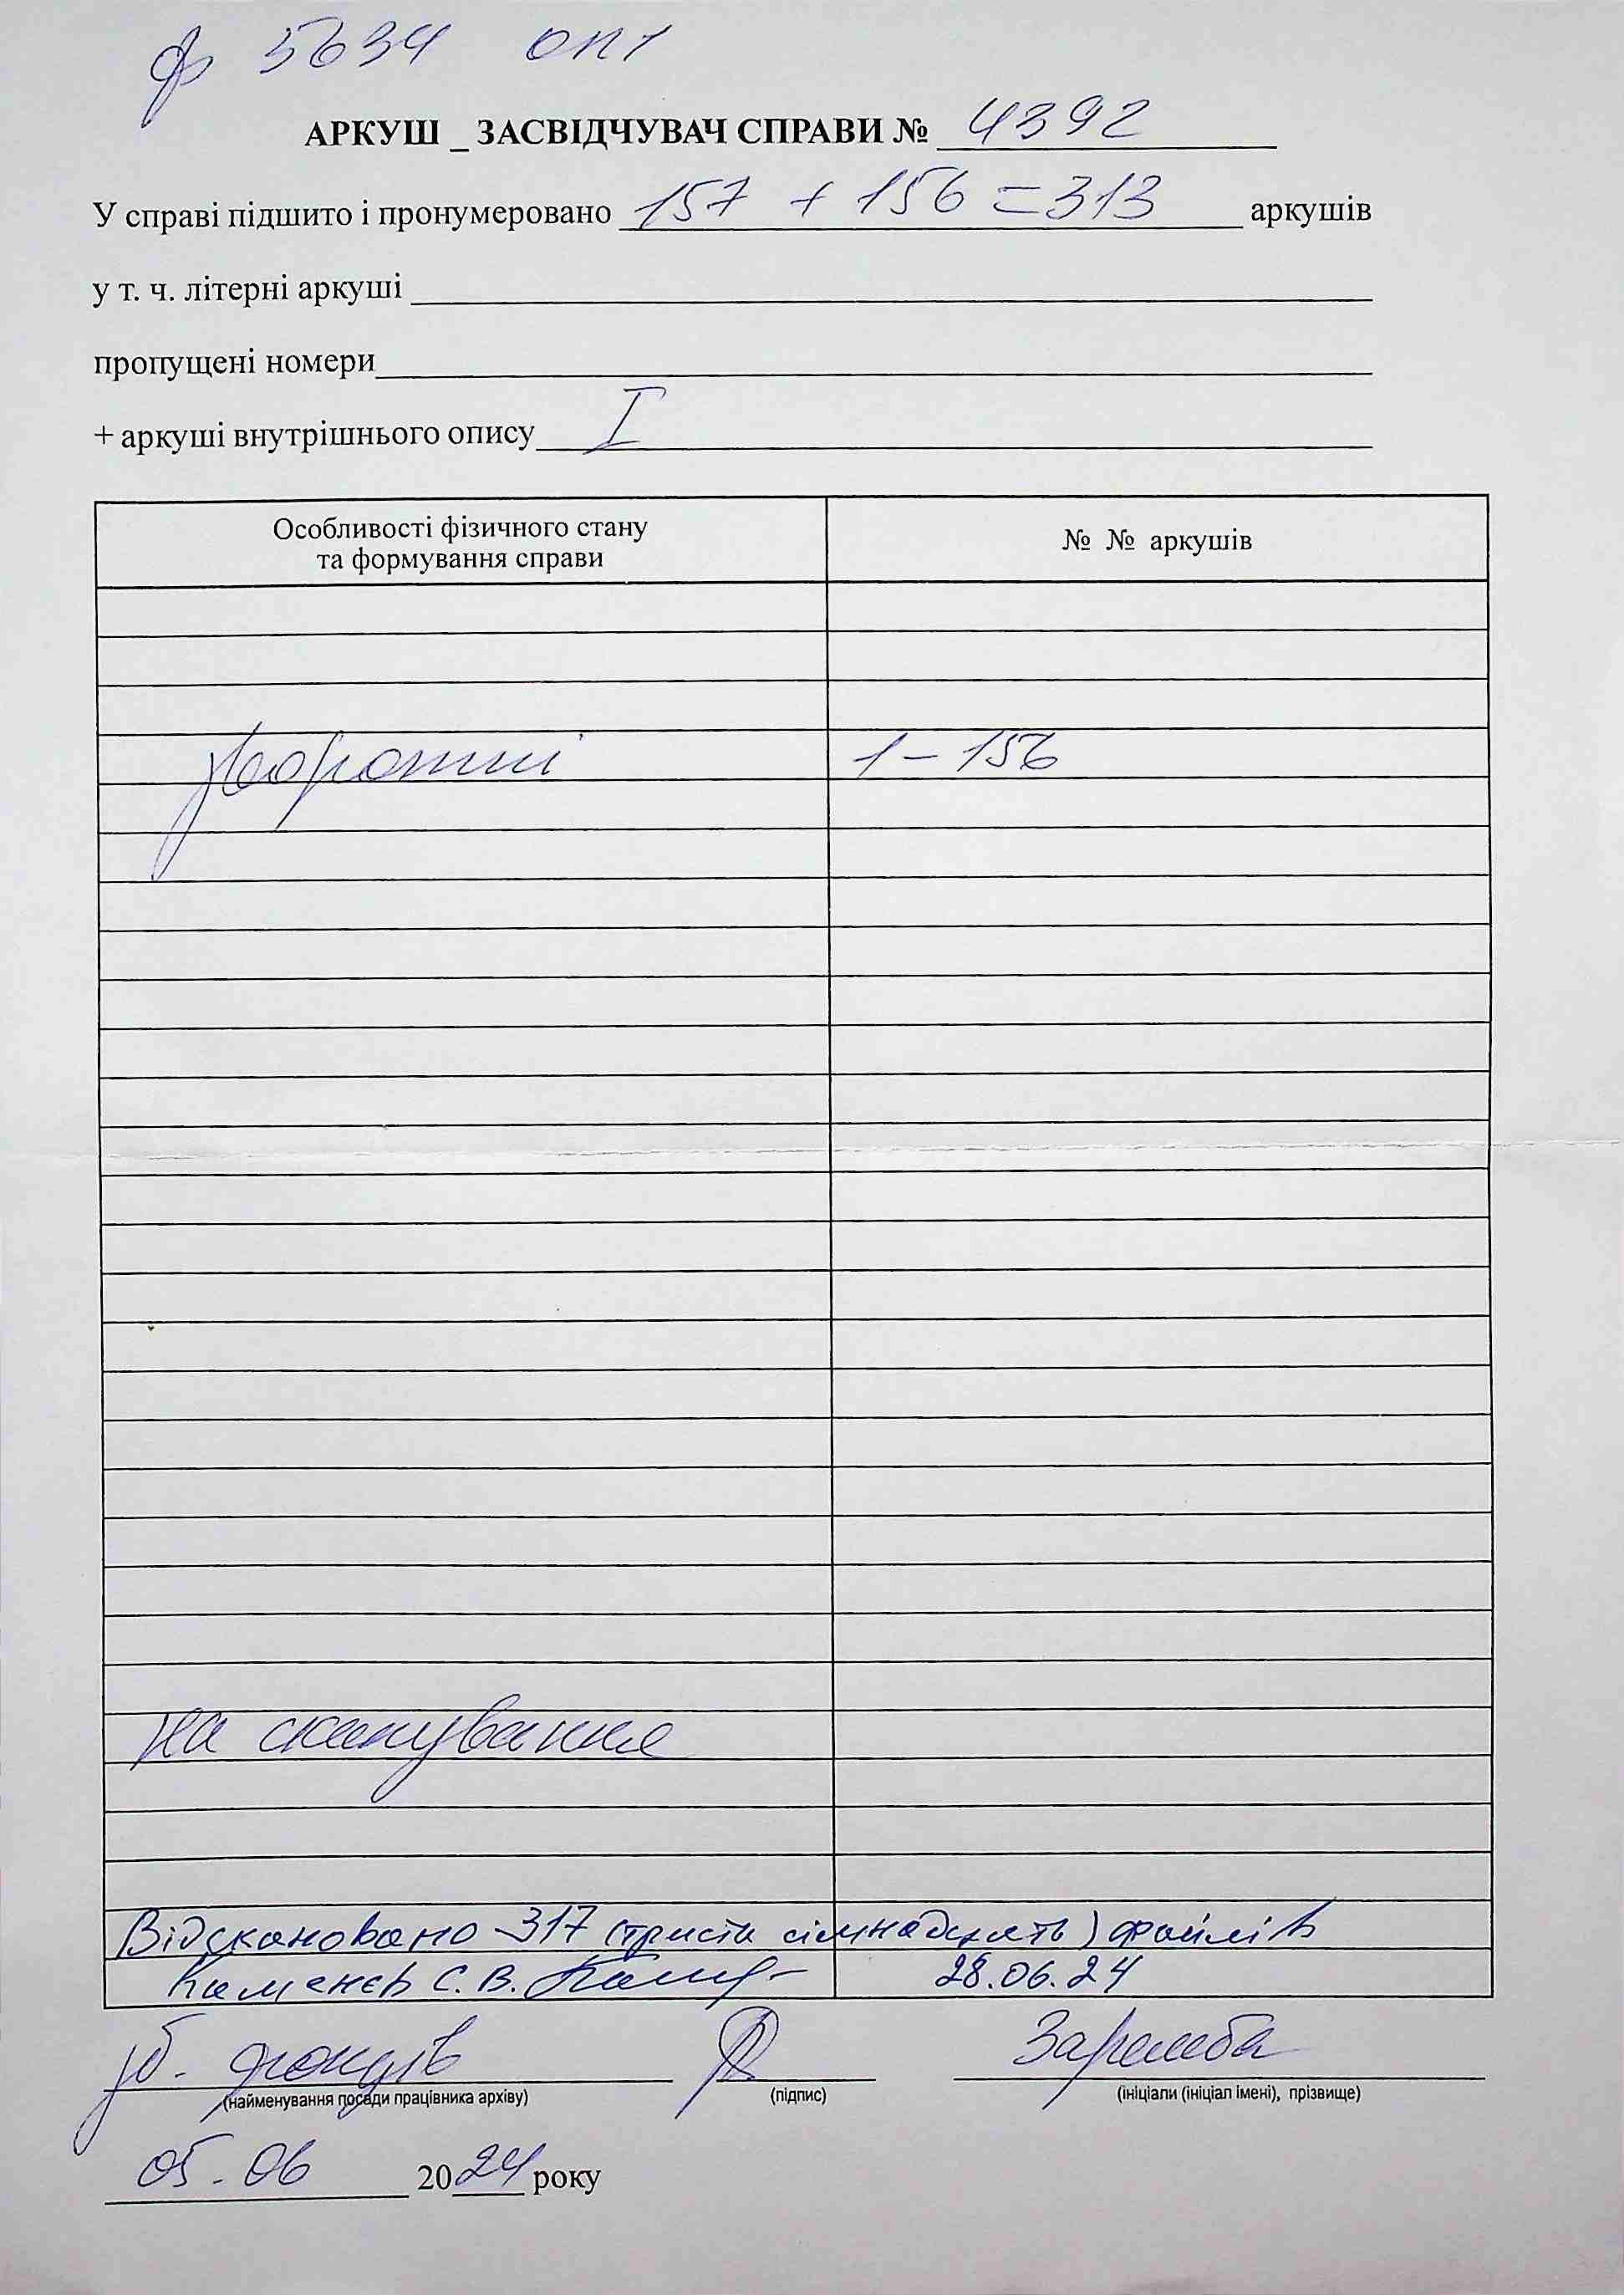 ф 5634 оп 1
АРКУШ _ ЗАСВІДЧУВАЧ СПРАВИ № 4392
У справі підшито і пронумеровано 157 + 156 = 313 аркушів
у т. ч. літерні аркуші
пропущені номери
+ аркуші внутрішнього опису I
Особливості фізичного стану та формування справи
№ № аркушів
Зворотні 1 – 156
на сканування
Відскановано – 317 (триста сімнадцять) файлів
Каменєв С. В. 28.06.24
зб. фондів Заремба
(найменування посади працівника архіву) (підпис) (ініціали (ініціал імені), прізвище)
05.06 2024 року